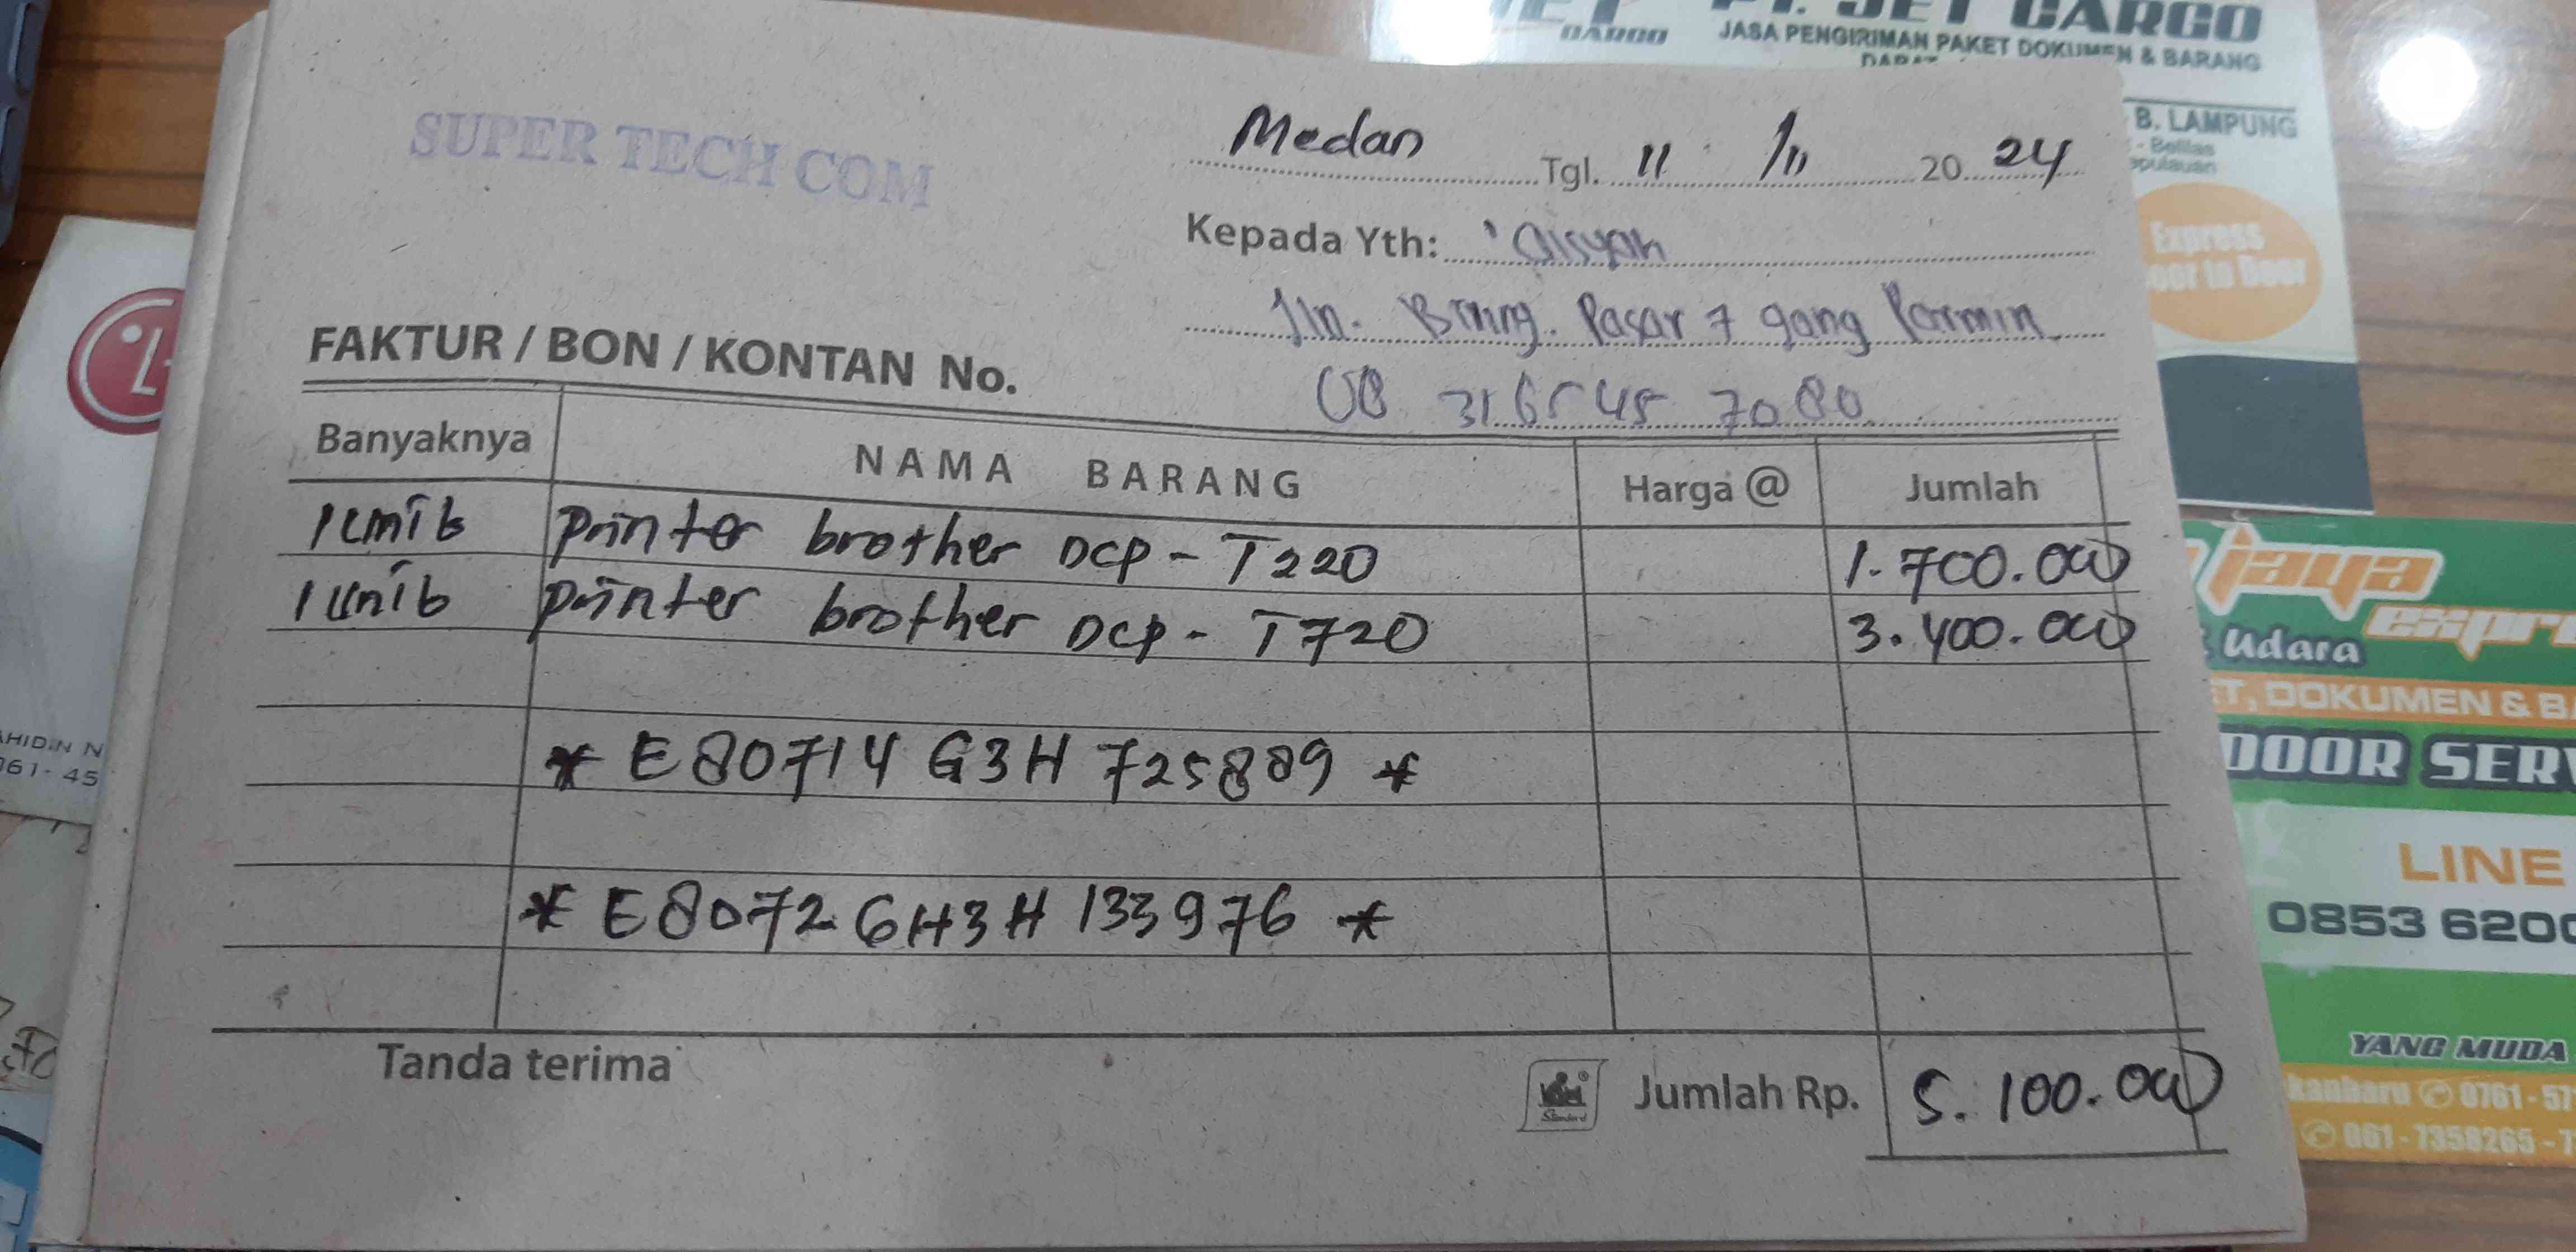 SUPER TECH COM
Medan Tgl. 11 /11 20 24
Kepada Yth: Aisyah
Jln. Pasar 7 gang Parmin
08 3165 45 7080
FAKTUR / BON / KONTAN No.
Banyaknya NAMA BARANG Harga @ Jumlah
1 unit printer brother DCP - T220 1.700.000
1 unit printer brother DCP - T720 3.400.000
* E80714 G3H 725889 *
* E80726H3H 133976 *
Tanda terima
Standard
Jumlah Rp. 5.100.000
CARGO
PT. JET CARGO
JASA PENGIRIMAN PAKET DOKUMEN & BARANG
B. LAMPUNG
Express
jaya
Udara
DOKUMEN & B
LINE
0853 6200
YANG MUDA
0761 - 57
061 - 7358265 - 7
061 - 45